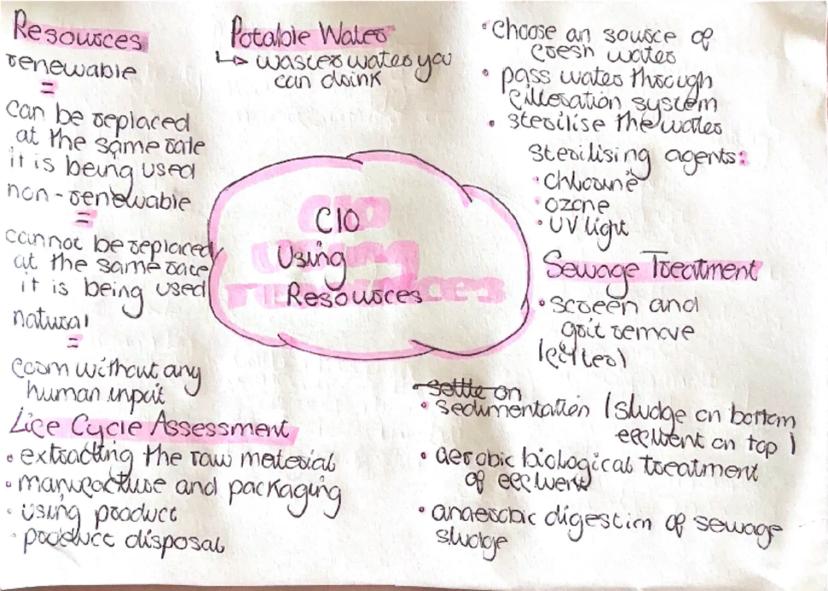 Resources
renewable
=
can be replaced
at the same rate
it is being used
non-renewable
=
cannot be replaced
at the same rate
it is being used
natural
=
form without any
human input
Life Cycle Assessment
• extracting the raw material
• manufacture and packaging
• using product
• product disposal
Potable Water
↳ water you
can drink
C10
Using
Resources
• choose an source of
fresh water
• pass water through
filteration system
• sterilise the water
sterilising agents:
• chlorine
• ozone
• UV light
Sewage Treatment
• screen and
grit remove
(filter)
settle on
• sedimentation (sludge on bottom
effluent on top)
• aerobic biological treatment
of effluent
• anaerobic digestion of sewage
sludge